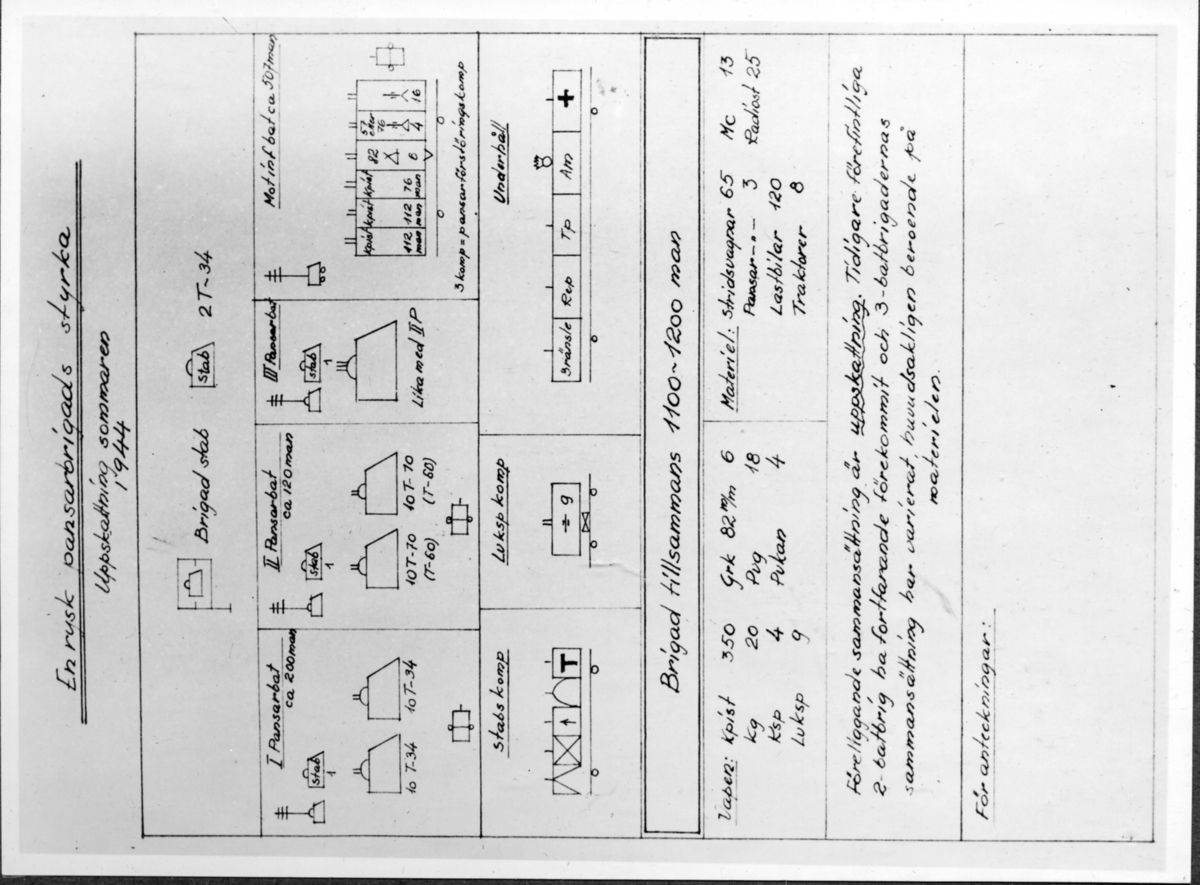 En rysk pansarbrigads styrka
Uppskattning sommaren
1944
Brigad stab
stab
2T-34
I Pansarbat
ca 200man
stab
1
10 T-34
10 T-34
II Pansarbat
ca 120man
stab
1
10T-70
(T-60)
10T-70
(T-60)
III Pansarbat
stab
1
Lika med II P
Mot inf bat ca 507man
kpist kpist kpist
82
57
eller
76
112 112 76
man man man
6
4
16
3 komp = pansarförstöringskomp
Stabskomp
T
Luksp komp
9
Underhåll
Bränsle
Rep
Tp
Am
Brigad tillsammans 1100-1200 man
Vapen: kpist 350
Kg 20
Ksp 4
Luksp 9
Grk 82 m/m 6
Pvg 18
Pvkan 4
Materiel: Stridsvagnar 65
Pansar-"- 3
Lastbilar 120
Traktorer 8
Mc 13
Radiost 25
Föreliggande sammansättning är uppskattning. Tidigare förefintliga
2-batbrig ha fortfarande förekommit och 3-batbrigadernas
sammansättning har varierat huvudsakligen beroende på
materielen.
För anteckningar: